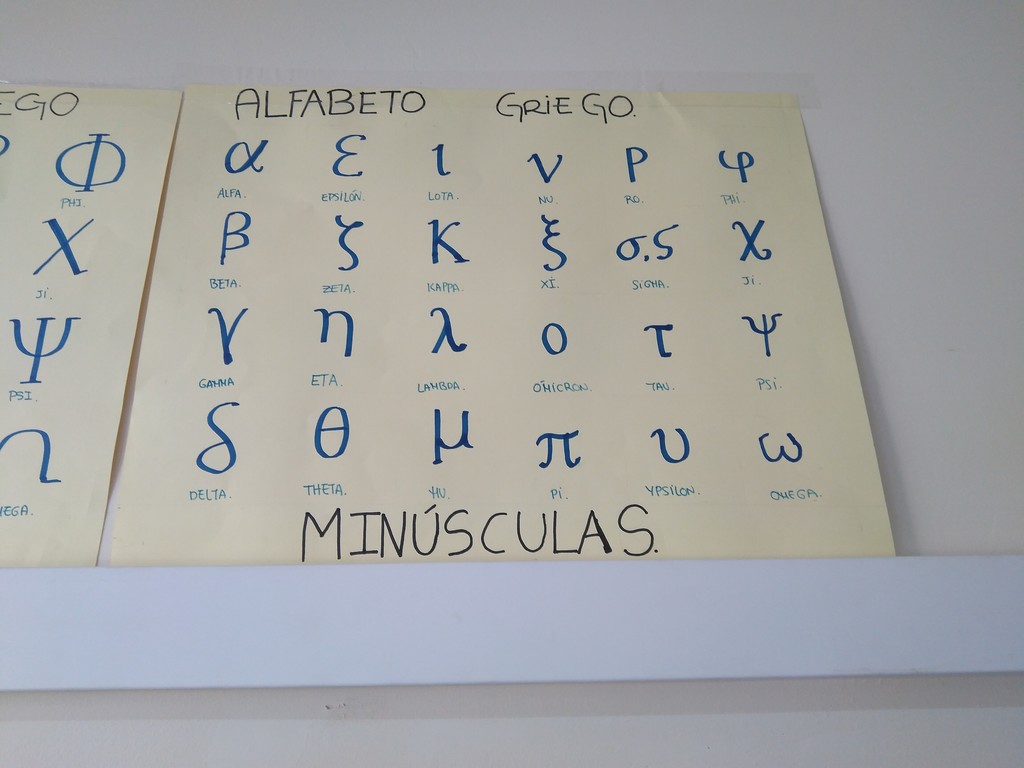 EGO
Φ
PHI.
X
Ji.
Ψ
PSI.
Ω
MEGA.
ALFABETO GRIEGO.
α ε ι ν ρ φ
ALFA. EPSILÓN. LOTA. NU. RO. PHi.
β ζ κ ξ σ,ς χ
BETA. ZETA. KAPPA. Xi. SiGMA. Ji.
γ η λ ο τ ψ
GAMMA ETA. LAMBDA. O'MICRON. TAU. PSi.
δ θ μ π υ ω
DELTA. THETA. MU. Pi. YPSiLON. OMEGA.
MINÚSCULAS.